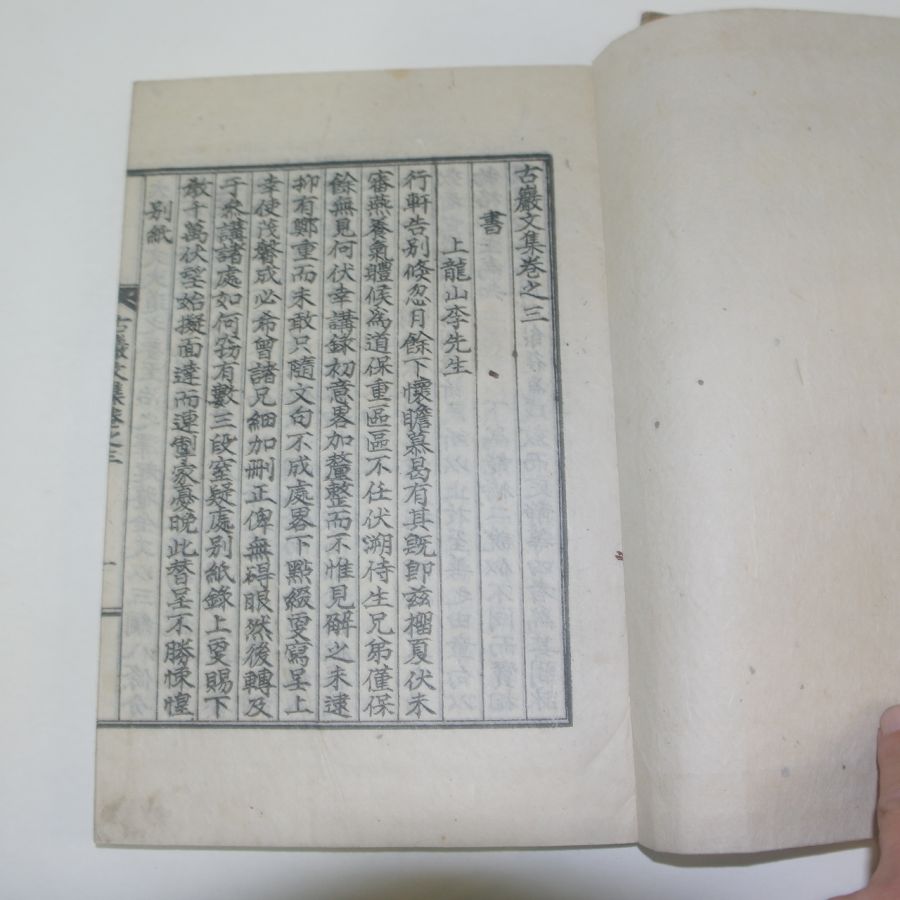 古巖文集卷之三
書
上龍山李先生
行軒告别倏忽月餘下懷瞻慕曷有其旣卽玆榴夏伏未
審燕養氣體候爲道保重區區不任伏溯侍生兄弟僅保
餘無見何伏幸講錄初意畧加釐整而不惟見解之未逮
抑有鄭重而未敢只隨文句不成處畧下點綴更寫呈上
幸使茂磐成必希曾諸兄細加刪正俾無碍眼然後轉及
于參講諸處如何窃有數三段窒疑處别紙錄上更賜下
敎千萬伏望始擬面達而連掣家憂晩此替呈不勝悚惶
别紙
古巖文集卷之三
一